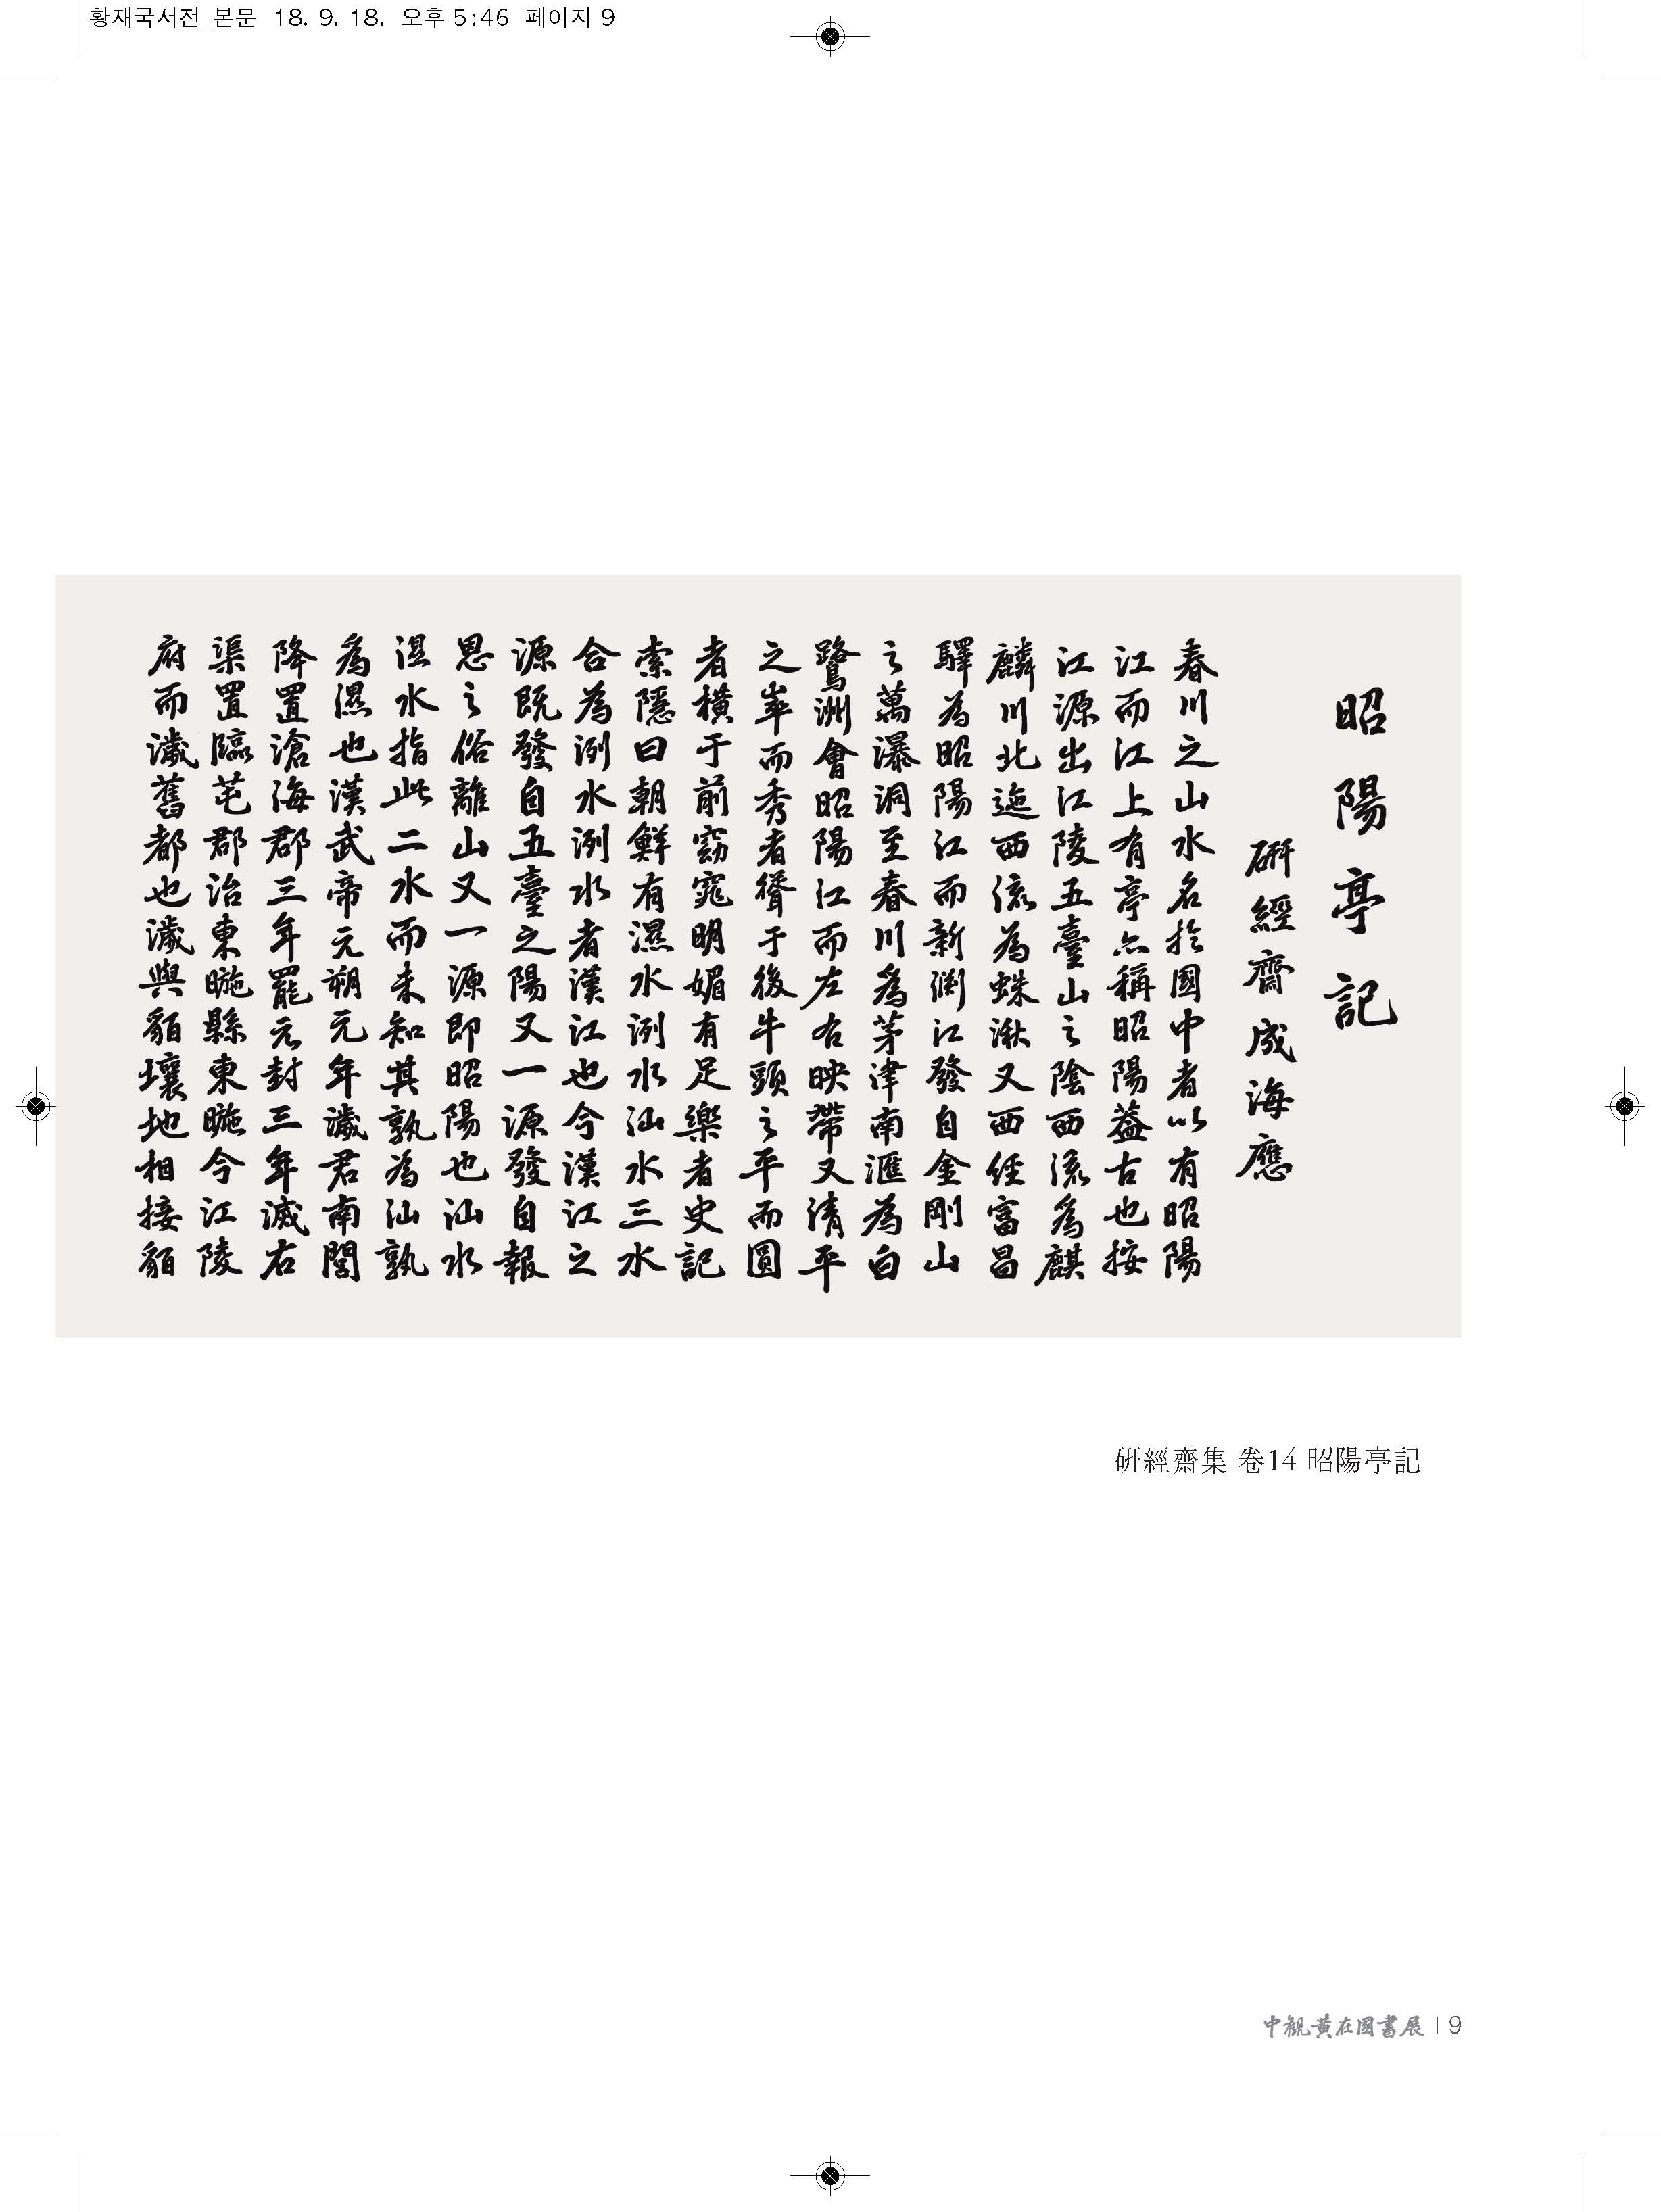 황재국서전_본문 18. 9. 18. 오후 5:46 페이지 9
昭陽亭記
硏經齋成海應
春川之山水名於國中者以有昭陽
江而江上有亭亦稱昭陽蓋古也按
江源出江陵五臺山之陰西流爲麒
麟川北迤西流為蛛湫又西經富昌
驛為昭陽江而新淵江發自金剛山
之萬瀑洞至春川爲茅津南滙為白
鷺洲會昭陽江而左右映帶又淸平
之崒而秀者聳于後牛頭之平而圓
者橫于前窈窕明媚有足樂者史記
索隱曰朝鮮有濕水洌水汕水三水
合為洌水洌水者漢江也今漢江之
源既發自五臺之陽又一源發自報
恩之俗離山又一源即昭陽也汕水
湿水指此二水而未知其孰為汕孰
為濕也漢武帝元朔元年濊君南閭
降置滄海郡三年罷元封三年滅右
渠置臨芚郡治東暆縣東暆今江陵
府而濊舊都也濊與貊壤地相接貊
硏經齋集 卷14 昭陽亭記
中観黄在国書展 | 9